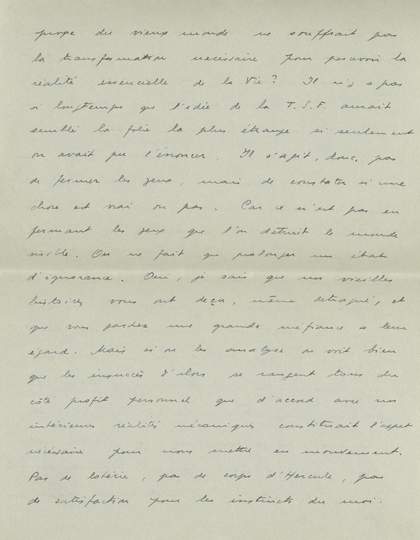 propre du vieux monde ne souffrait pas
la transformation nécessaire pour percevoir la
réalité essencielle de la Vie? Il n'y a pas
si longtemps que l'idée de la T.S.F. aurait
semblé la folie la plus étrange si seulement
on avait pu l'énoncer. Il s'agit, donc, pas
de fermer les yeux, mais de constater si une
chose est vrai ou pas. Car ce n'est pas en
fermant les yeux que l'on détruit le monde
visible. On ne fait que prolonger un état
d'ignorance. Oui, je sais que nos vieilles
histoires vous ont déçu, même détraqué, et
que vous portez une grande méfiance à leur
égard. Mais si on les analyse on voit bien
que les insuccès d'alors se rangent tous du
côté profit personnel que d'accord avec nos
intérieures réalités mécaniques constituait l'aspect
nécessaire pour nous mettre en mouvement.
Pas de loterie, pas de corps d'Hercule, pas
de satisfaction pour les instincts du moi.